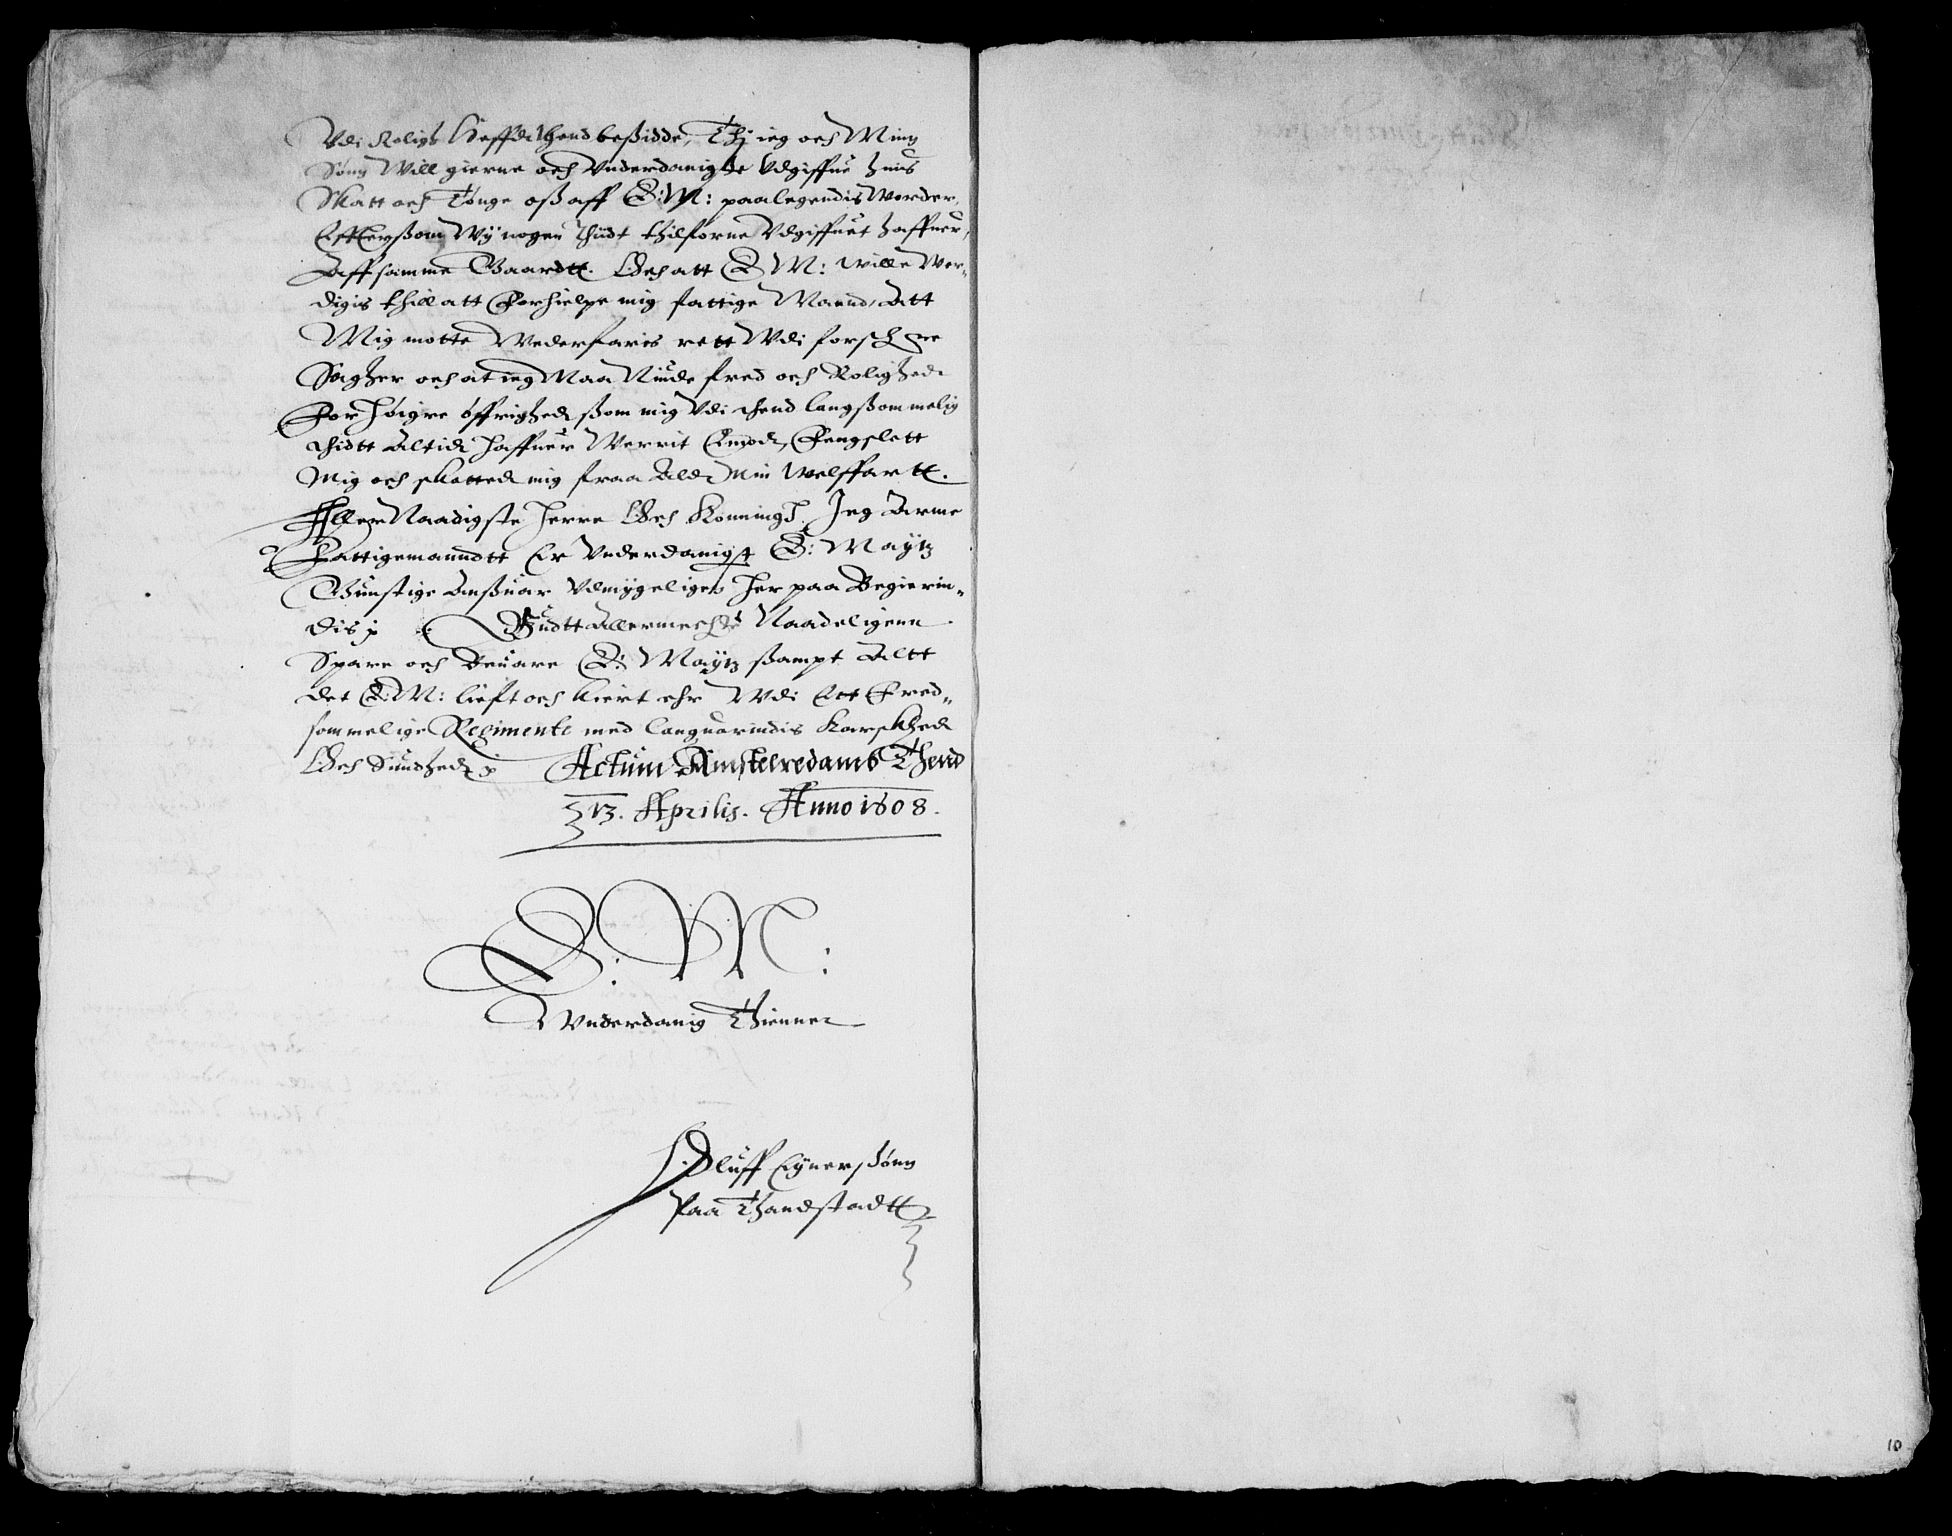 Vdi Roligh Heffdt thend beßidde, Thj ieg och Minn
Sønn Will gierne och Vnderdanigste Vdgiffue huis
Skatt och Tonge oß aff E: M: paalegendis Worder,
Effterßom Wy nogen thidt thilforne Vdgiffuet haffuer,
Aff samme Gaardtt. Och att E M: wille Wer-
digis thill att Forhielpe mig fattige Mannd, Att
Mig motte Wederfaris rett Vdi forsch ne
Sagher och at ieg Maa Niude fred och Rolighed
For høigre øffrighed ßom mig Vdi thend langßommelig
thidtt Altid haffuer Werrit Emod, Fengslett
Mig och skatted mig fraa Ald Min Welffartt.
Aller Naadigste Herre Och Konningh Jeg Arme
Fattigemanndtt Er Vnderdanigst E: Maytz
Gunstige Anßuar Vdmygeligen her paa Begierin-
dis Gudtt Allermechte Naadeligenn
Spare och Beuare E: Maytz ßampt Altt
det E: M: lieft och kiert ehr Vdi Ett Fred-
sommelige Regimente med languarindis Karskhed
Och Sundhed Actum Amstelredamb Thend
13. Aprilis. Anno 1608.
E: M:
Vnderdanig Thienner
Oluff Eynerßønn
Paa Thandstadtt
10